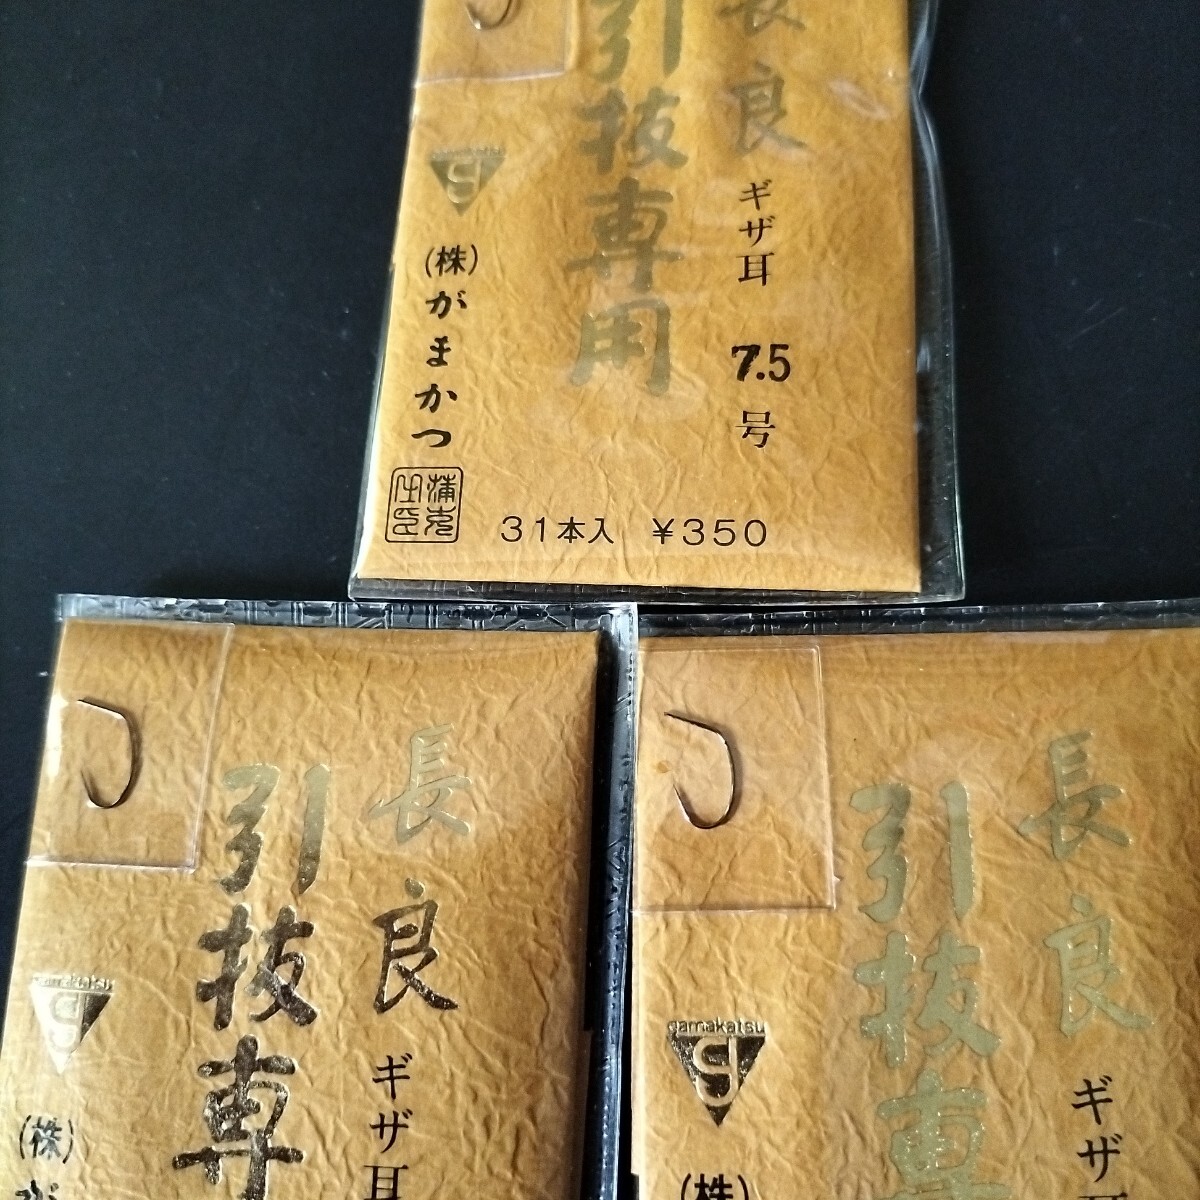 長良
引抜専用
ギザ耳
7.5号
(株)がまかつ
31本入 ¥350
長良
引抜専
ギザ耳
gamakatsu
(株)が
長良
引抜専
ギザ
gamakatsu
(株)